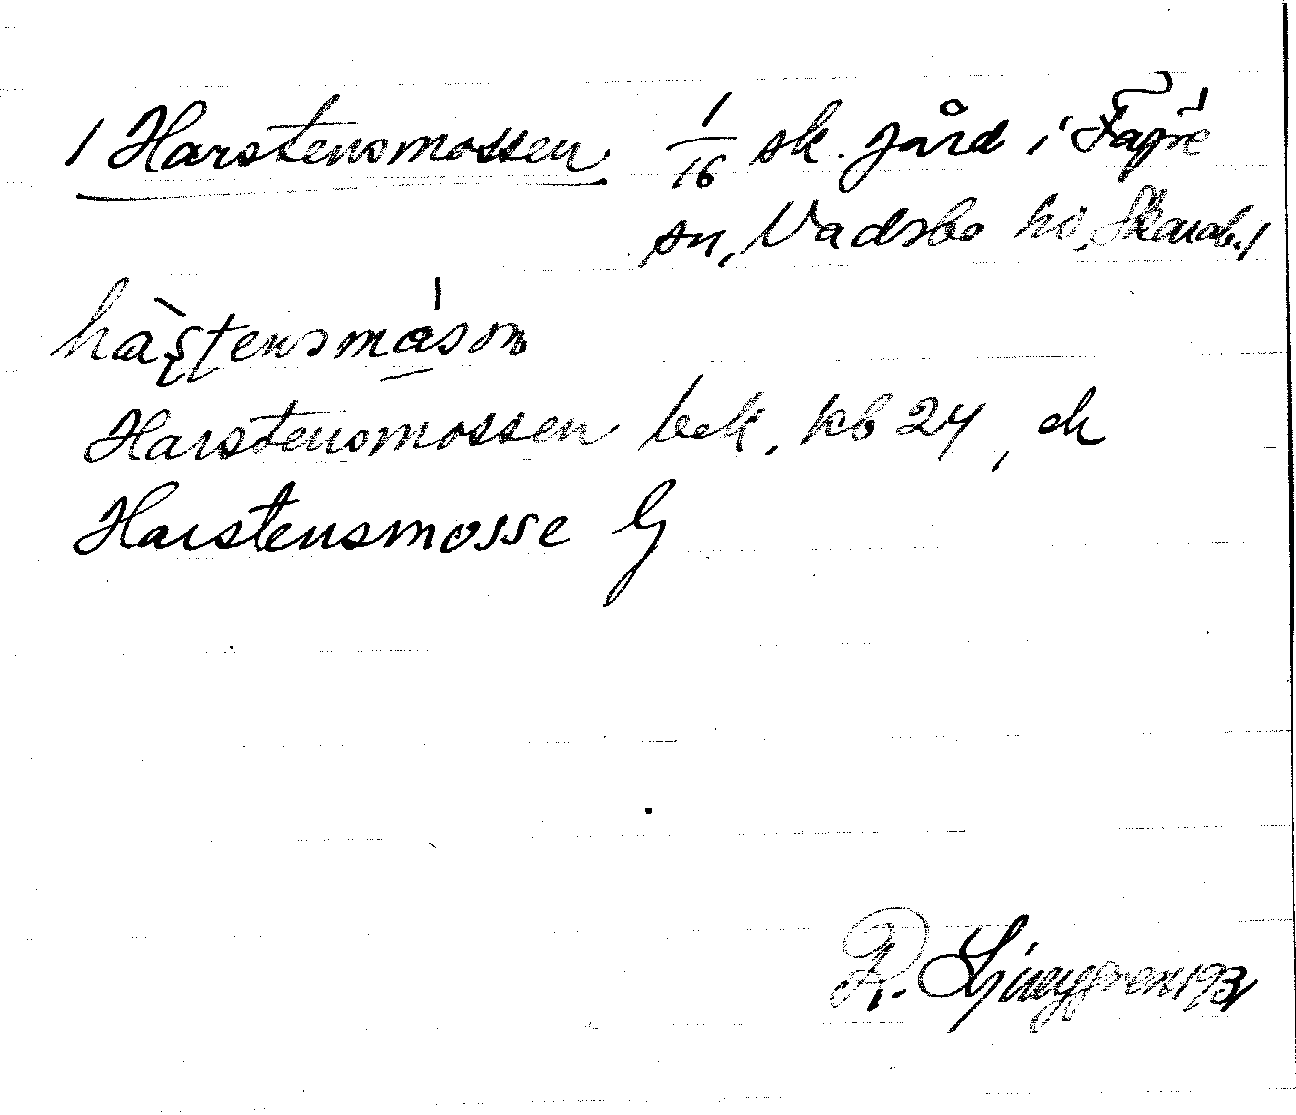 1 Harstensmossen 1/16 sk. gård i Fägre
sn, Vadsbo hd, Skarab. l
Harstensmossen bek. kb 24, ek
Harstensmosse G
R. Ljunggren 1931